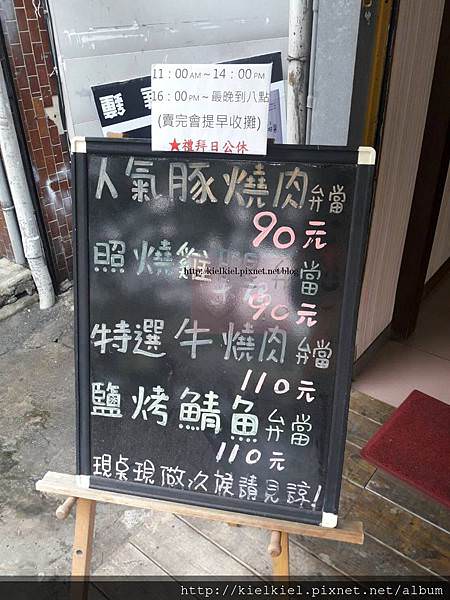 11：00AM～14：00PM
16：00PM～最晚到八點
(賣完會提早收攤)
★禮拜日公休
人氣豚燒肉弁當
90元
http://kielkiel.pixnet.net/blog
照燒雞弁當
90元
特選牛燒肉弁當
110元
鹽烤鯖魚弁當
110元
現点現做久候請見諒!
http://kielkiel.pixnet.net/album